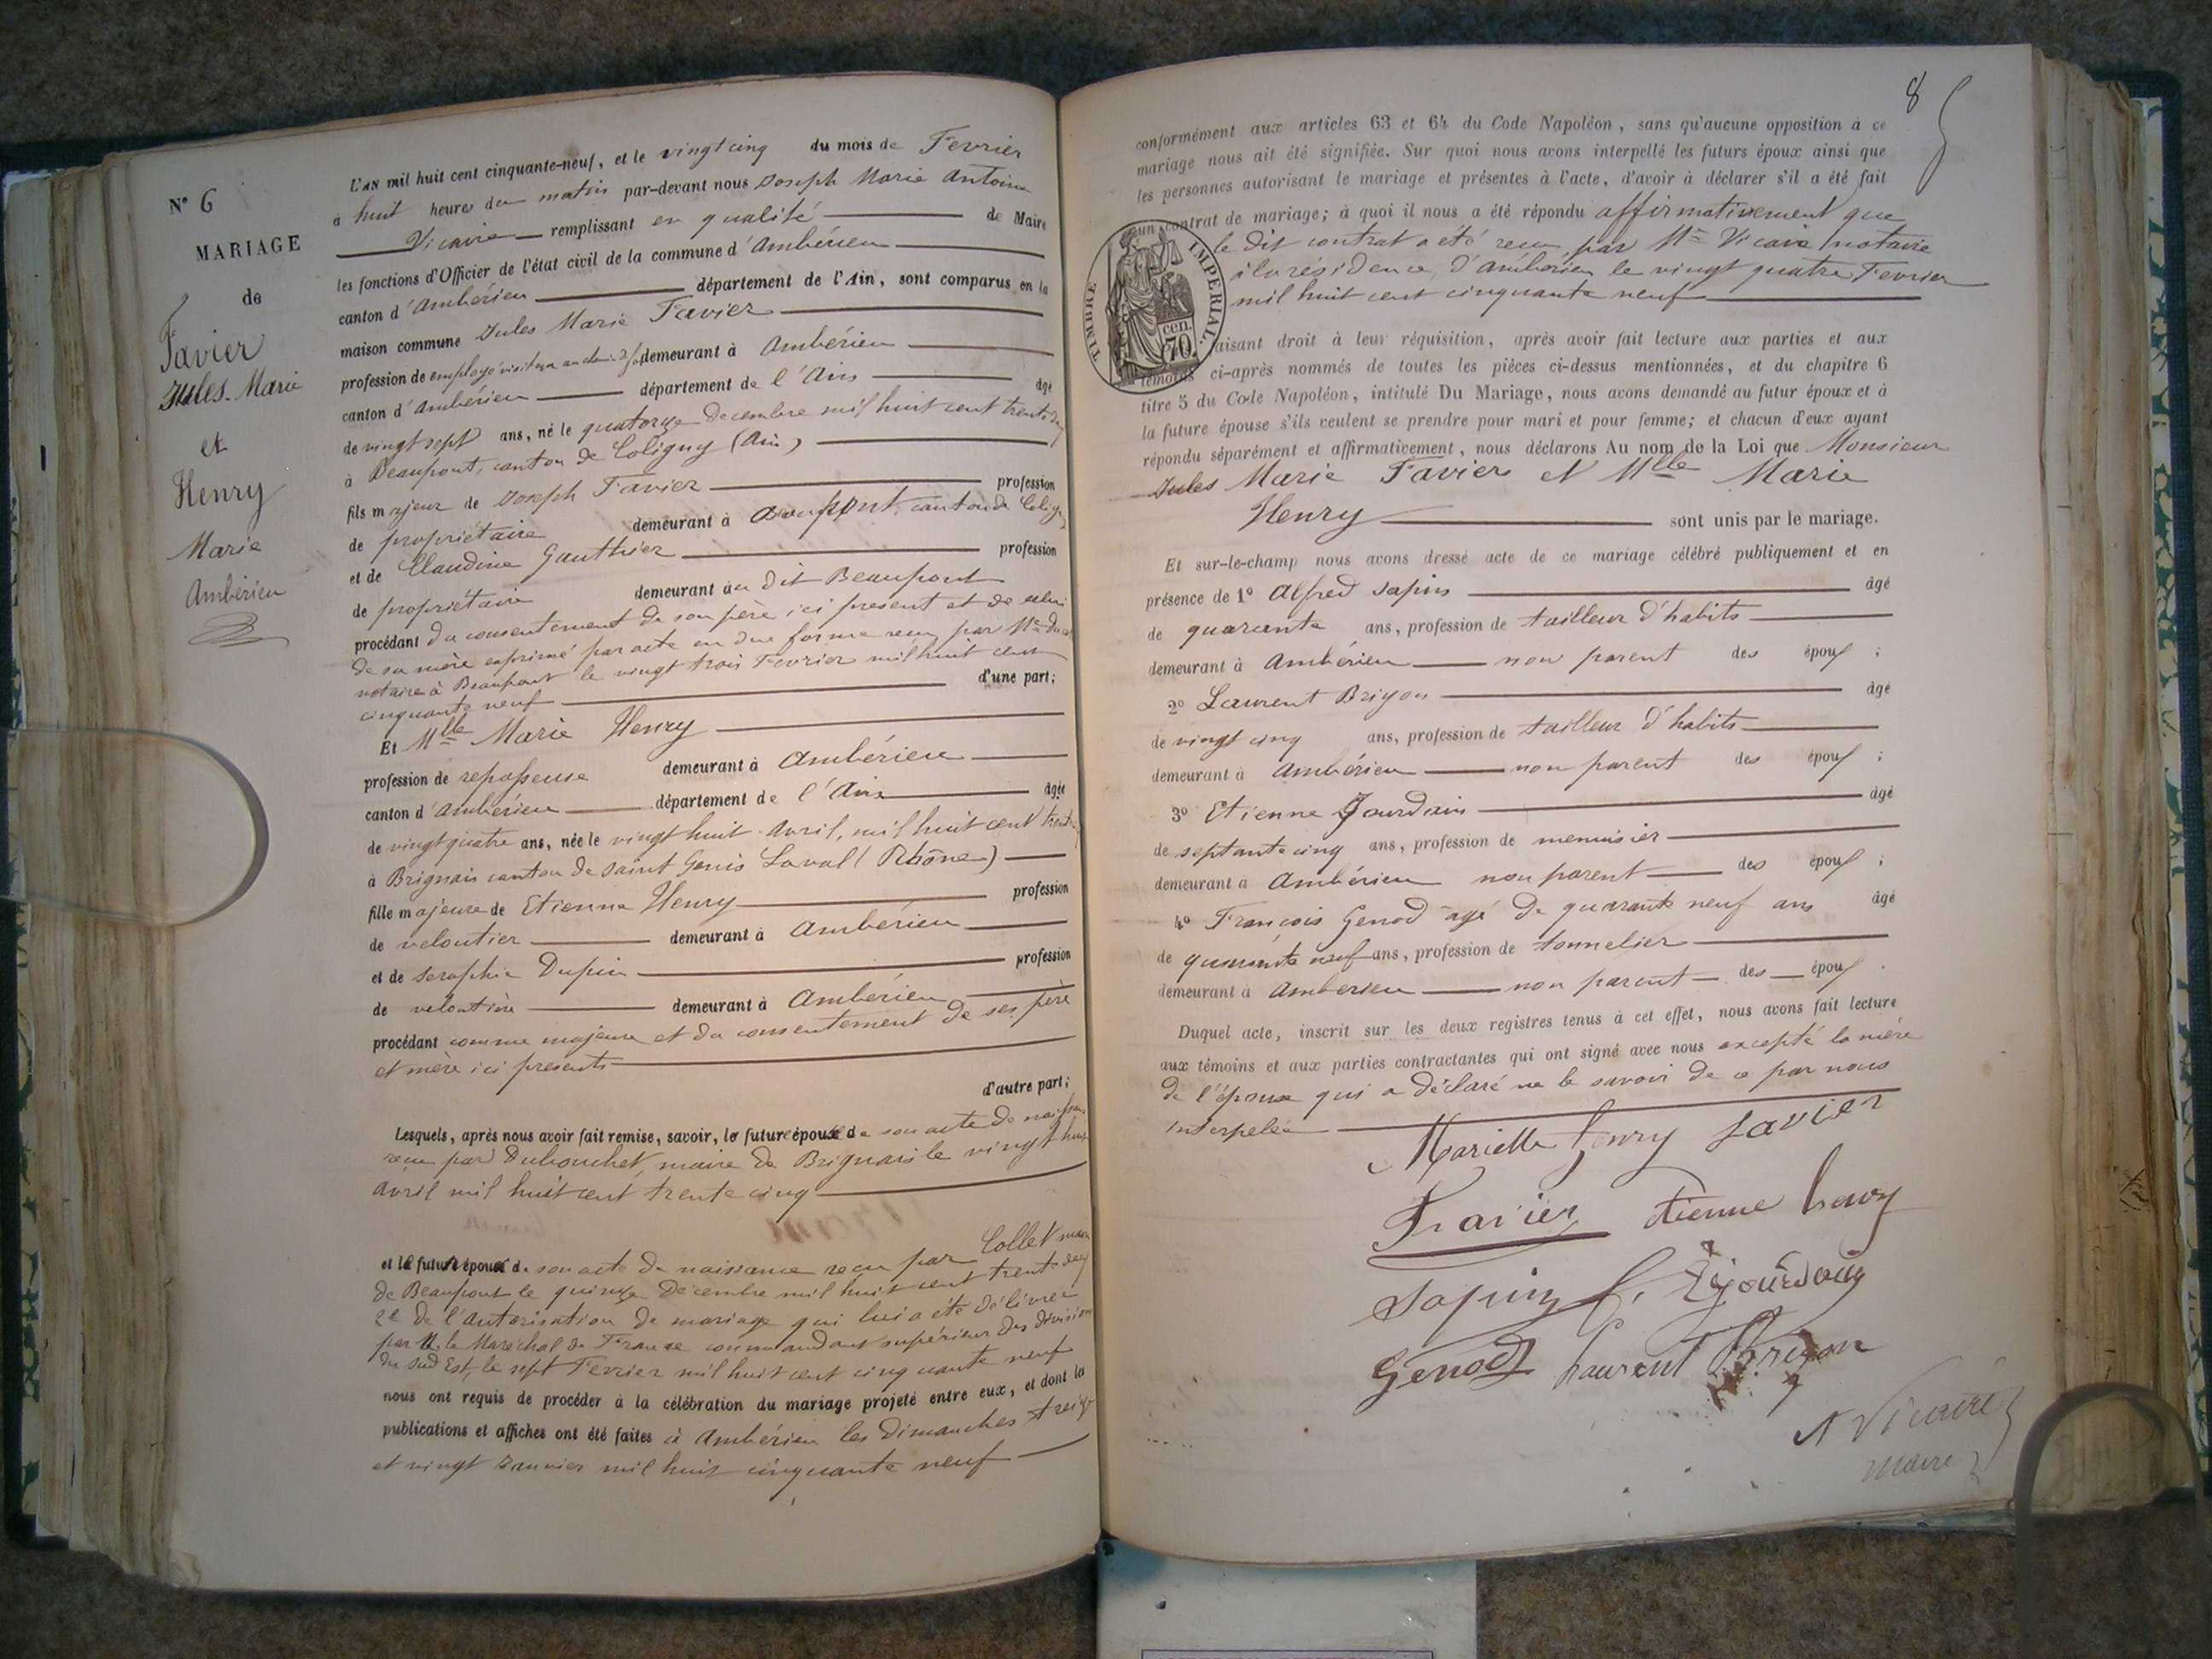 N° 6
MARIAGE
de
Favier
Jules-Marie
et
Henry
Marie
Ambérieu
L'AN mil huit cent cinquante-neuf, et le vingt cinq du mois de Fevrier
a huit heures du matin par-devant nous Joseph Marie Antoine
Vicaire remplissant en qualité de Maire
les fonctions d'Officier de l'état civil de la commune d'Ambérieu
canton d'Ambérieu département de l'Ain, sont comparus en la
maison commune Jules Marie Favier
profession de employé visiteur au demeurant à Ambérieu
canton d'Ambérieu département de l'Ain âgé
de vingt sept ans, né le quatorze decembre mil huit cent trente
à Beaupont, canton de Coligny (Ain)
fils majeur de Joseph Favier profession
de propriétaire demeurant à Beaupont, canton de
et de Claudine Gauthier profession
de propriétaire demeurant au dit Beaupont
procédant du consentement de son père ici present et de celui
de sa mère exprimé par acte en due forme reçu par Me
notaire à Beaupont le vingt trois Fevrier mil huit cent
cinquante neuf d'une part;
Et Mlle Marie Henry
profession de repasseuse demeurant à Ambérieu
canton d'Ambérieu département de l'Ain âgée
de vingt quatre ans, née le vingt huit Avril, mil huit cent
à Brignais canton de Saint Genis Laval (Rhône)
fille majeure de Etienne Henry profession
de veloutier demeurant à Ambérieu
et de Seraphie Dupin profession
de veloutière demeurant à Ambérieu
procédant comme majeure et du consentement de ses père
et mère ici presents
d'autre part;
Lesquels, après nous avoir fait remise, savoir, la future épouse de son acte de
reçu par Dubouchet, maire de Brignais le vingt huit
Avril mil huit cent trente cinq
et le futur époux de son acte de naissance reçu par Collet
de Beaupont le quinze Décembre mil huit cent trente
2° de l'Autorisation de mariage qui lui a été délivrée
par M. le Maréchal de France commandant supérieur des divisions
du Sud Est, le sept Fevrier mil huit cent cinquante neuf
nous ont requis de procéder à la célébration du mariage projeté entre eux, et dont les
publications et affiches ont été faites à Ambérieu les dimanches treize
et vingt Janvier mil huit cinquante neuf
8
conformément aux articles 63 et 64 du Code Napoléon, sans qu'aucune opposition à ce
mariage nous ait été signifiée. Sur quoi nous avons interpellé les futurs époux ainsi que
les personnes autorisant le mariage et présentes à l'acte, d'avoir à déclarer s'il a été fait
un contrat de mariage; à quoi il nous a été répondu affirmativement que
le dit contrat a été reçu par Me Vicaire notaire
à la résidence d'Ambérieu le vingt quatre Fevrier
mil huit cent cinquante neuf
TIMBRE IMPERIAL.
70 cen.
aisant droit à leur réquisition, après avoir fait lecture aux parties et aux
témoins ci-après nommés de toutes les pièces ci-dessus mentionnées, et du chapitre 6
titre 5 du Code Napoléon, intitulé Du Mariage, nous avons demandé au futur époux et à
la future épouse s'ils veulent se prendre pour mari et pour femme; et chacun d'eux ayant
répondu séparément et affirmativement, nous déclarons Au nom de la Loi que Monsieur
Jules Marie Favier et Mlle Marie
Henry sont unis par le mariage.
Et sur-le-champ nous avons dressé acte de ce mariage célébré publiquement et en
présence de 1° Alfred Sapin âgé
de quarante ans, profession de tailleur d'habits
demeurant à Ambérieu non parent des époux;
2° Laurent Brigon âgé
de vingt cinq ans, profession de tailleur d'habits
demeurant à Ambérieu non parent des époux;
3° Etienne Jourdain âgé
de septante cinq ans, profession de menuisier
demeurant à Ambérieu non parent des époux;
4° François Genod âgé de quarante neuf ans âgé
de quarante neuf ans, profession de tonnelier
demeurant à Ambérieu non parent des époux.
Duquel acte, inscrit sur les deux registres tenus à cet effet, nous avons fait lecture
aux témoins et aux parties contractantes qui ont signé avec nous excepté la mère
de l'épouse qui a déclaré ne le savoir de ce par nous
interpelée
Mariette henry favier
Favier etienne henry
Sapin
Genod Laurent Brigon
A Vicaire
maire